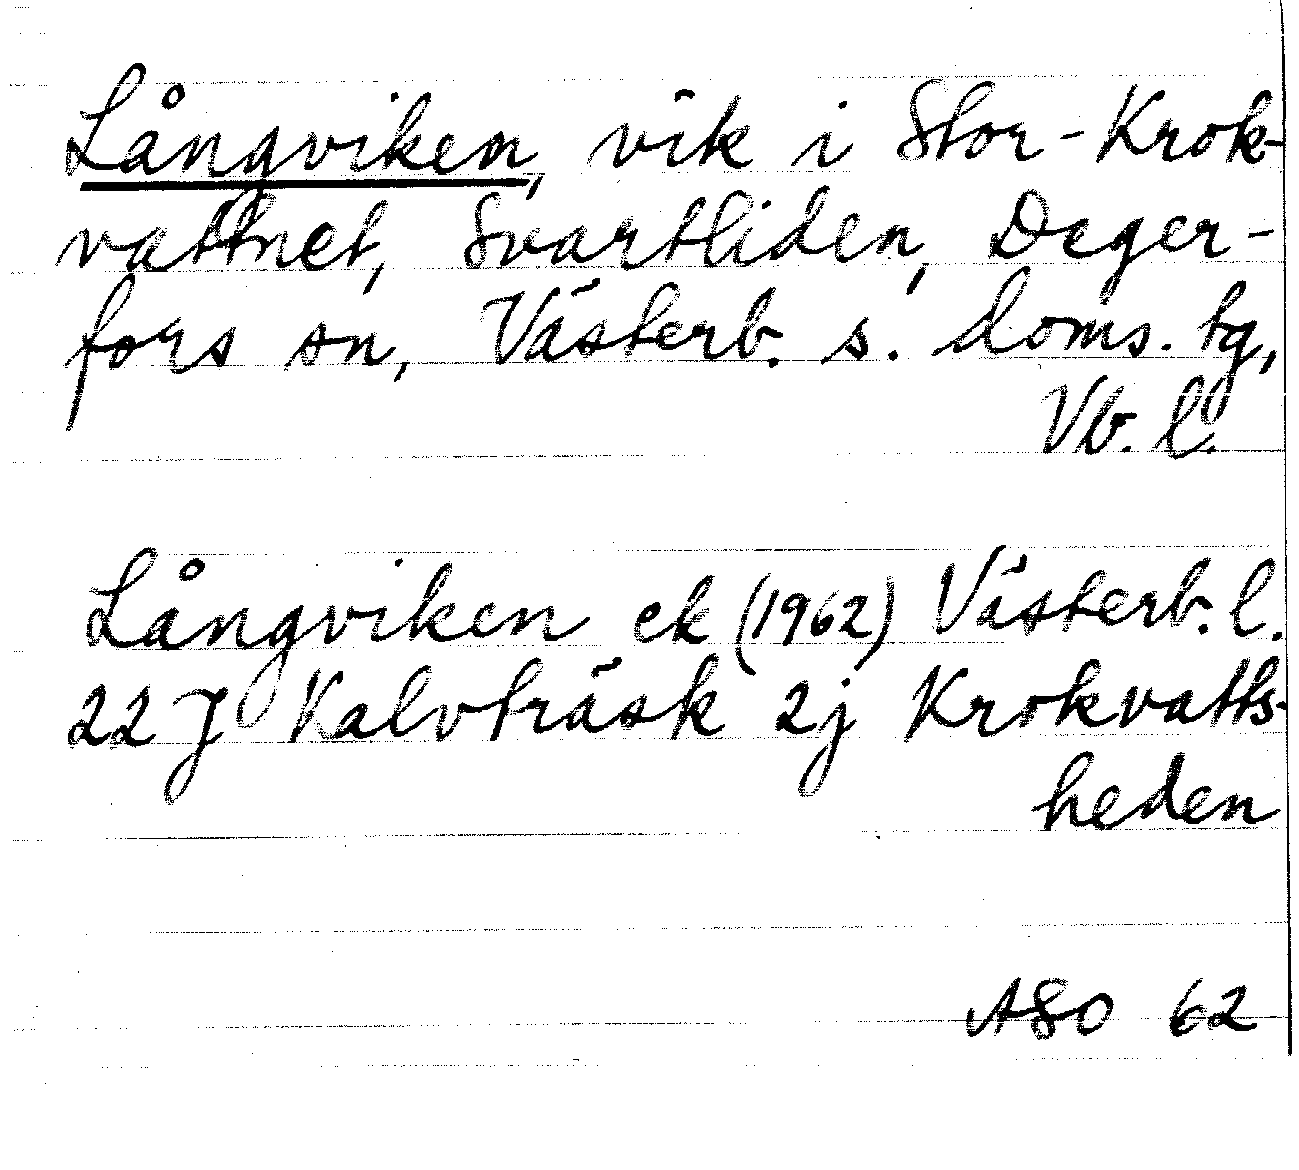 Långviken, vik i Stor-Krok-
vattnet, Svartliden, Deger-
fors sn, Västerb. s. doms. tg,
Vb. l.
Långviken ek (1962) Västerb. l.
22 J Kalvträsk 2j Krokvatts-
heden
ASO 62